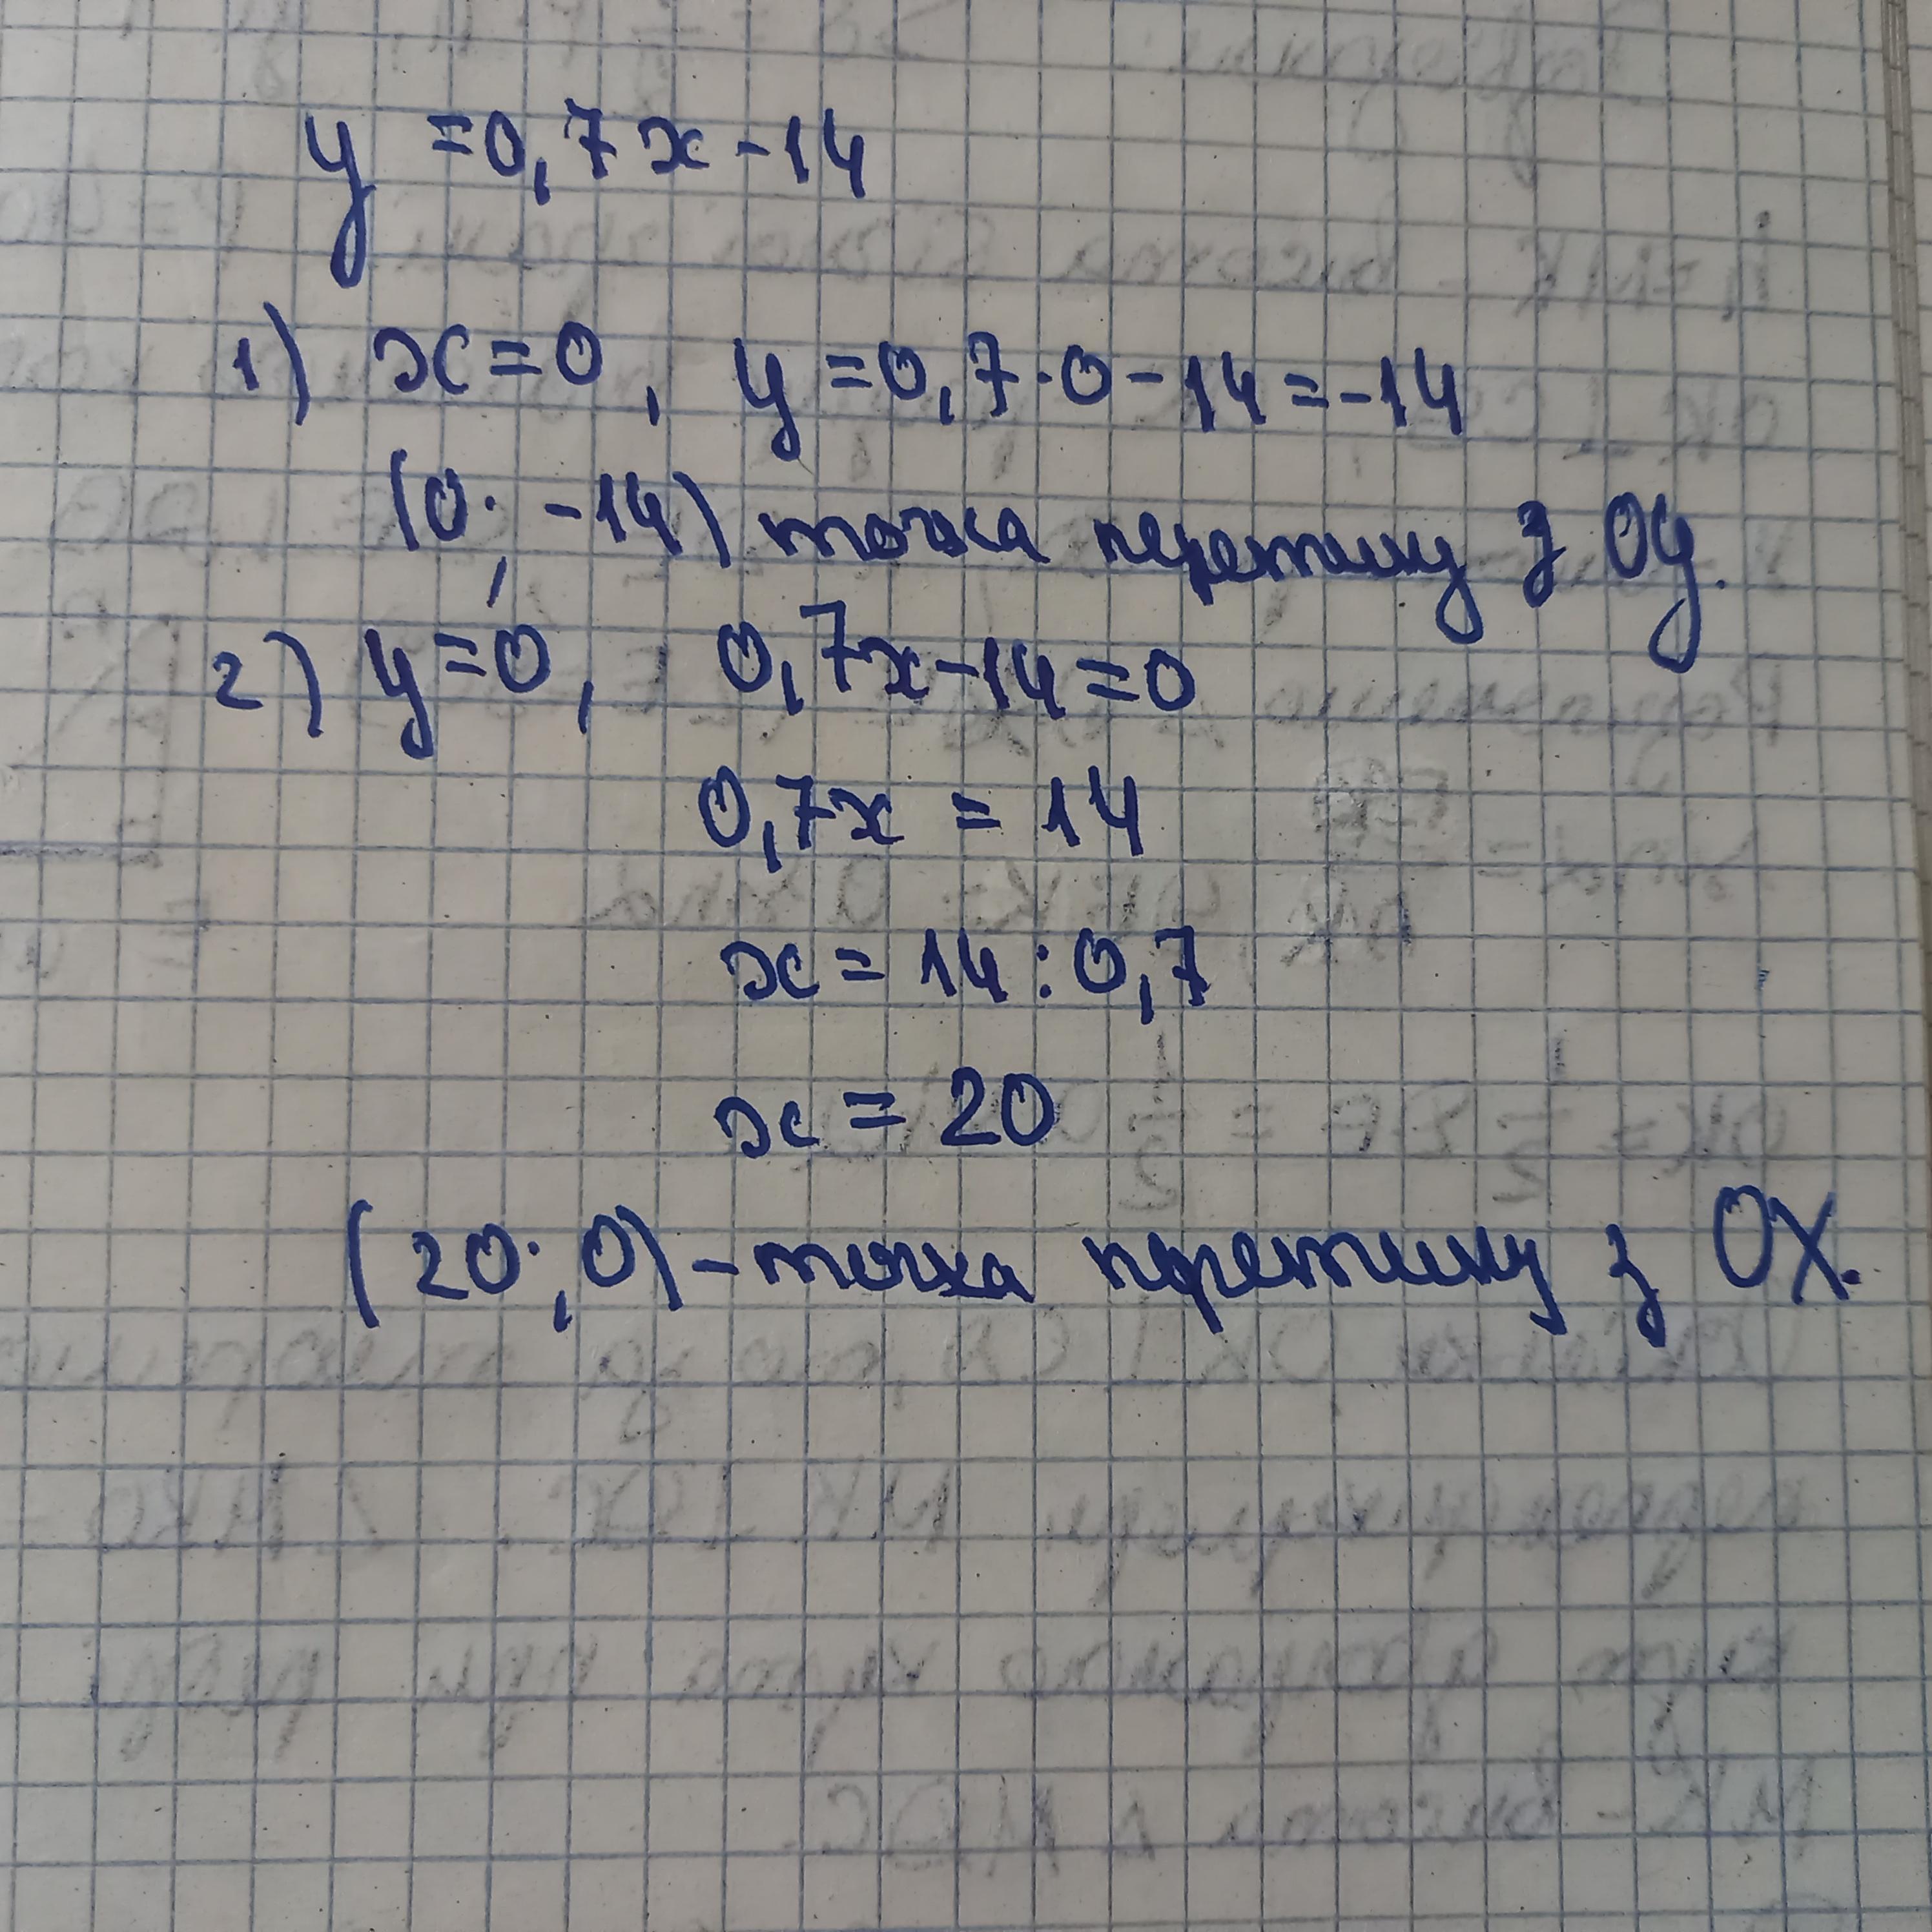 y = 0,7x - 14
1) x = 0, y = 0,7 · 0 - 14 = -14
(0; -14) точка перетину з Oy.
2) y = 0, 0,7x - 14 = 0
0,7x = 14
x = 14 : 0,7
x = 20
(20; 0) - точка перетину з OX.